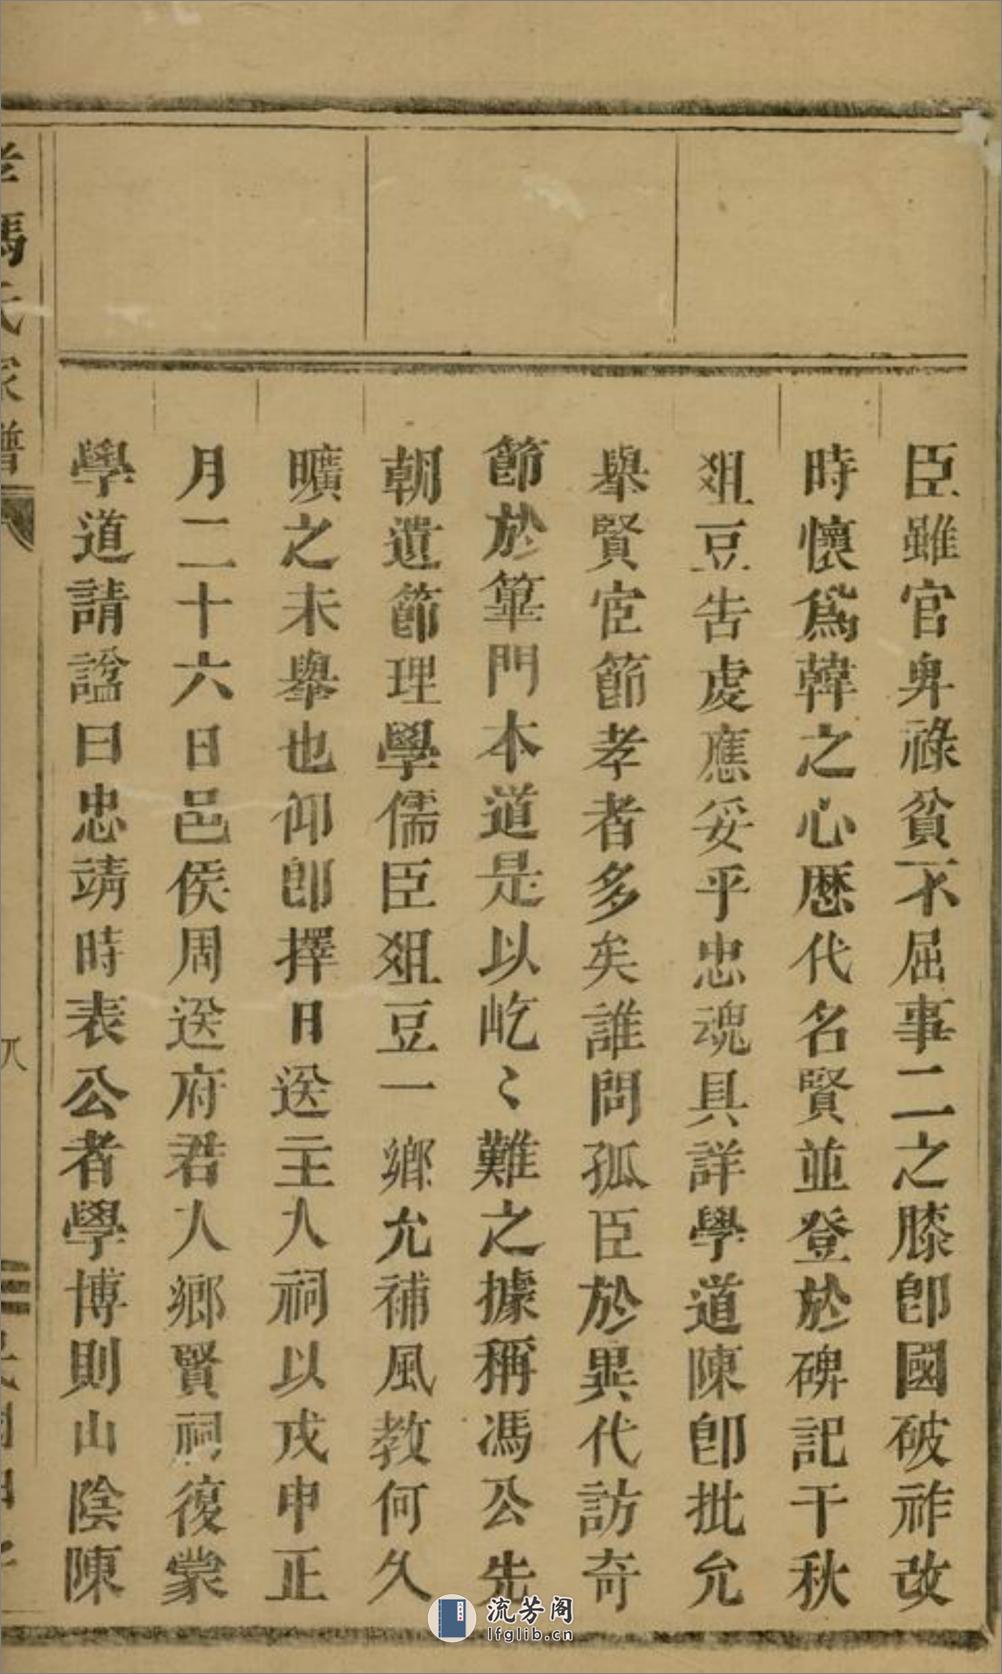 臣雖官卑祿貧不屈事二之膝卽國破祚改
時懷爲韓之心歷代名賢並登於碑記干秋
俎豆吿虔應妥乎忠魂具詳學道陳卽批允
舉賢宦節孝者多矣誰問孤臣於異代訪奇
節於篳門本道是以屹〻難之據稱馮公先
朝遺節理學儒臣俎豆一鄉允補風教何久
曠之未舉也仰卽擇日送主入祠以戊申正
月二十六日邑侯周送府君人鄉賢祠復蒙
學道請諡曰忠靖時表公者學博則山陰陳
馮氏家譜
八
流芳阁
lfglib.cn